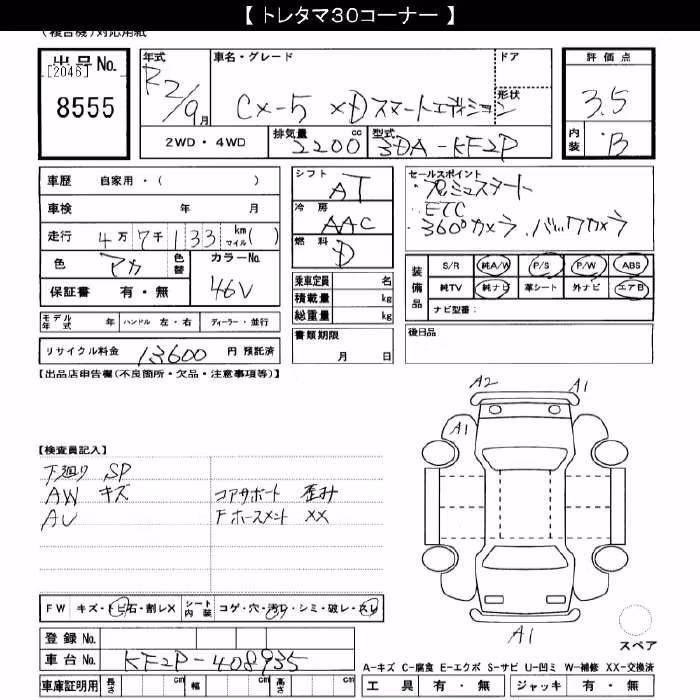 【 トレタマ30コーナー 】
(複合機)対応用紙
出品No.
[2046]
8555
年式
R2/9月
車名・グレード
CX-5 XDスマートエディション
ドア
形状
評価点
3.5
内装
B
2WD・4WD
排気量
2200 cc
型式
3DA-KF2P
車歴 自家用・( )
車検 年 月
走行 4万7千133 km マイル( )
色 アカ
色替
カラーNo.
46V
保証書 有・無
シフト
AT
冷房
AAC
燃料
D
乗車定員 名
積載量 kg
総重量 kg
書類期限
月 日
セールスポイント
ETC
・360°カメラ ・バックカメラ
装備品
S/R 純A/W P/S P/W ABS
純TV 純ナビ 革シート 外ナビ エアB
ナビ型番:
後日品
モデル年式 年 ハンドル 左・右 ディーラー・並行
リサイクル料金 13600 円 預託済
【出品店申告欄(不良箇所・欠品・注意事項等)】
【検査員記入】
下廻り SP
AW キズ
AU
コアサポート 歪み
Fホースメント XX
A2
A1
A1
A1
スペア
FW キズ・トビ石・割レX
シート内装 コゲ・穴・汚レ・シミ・破レ・スレ
登録No.
車台No. KF2P-408935
車庫証明用 長さ cm 幅 cm 高さ cm
A-キズ C-腐食 E-エクボ S-サビ U-凹ミ W-補修 XX-交換済
工具 有・無 ジャッキ 有・無